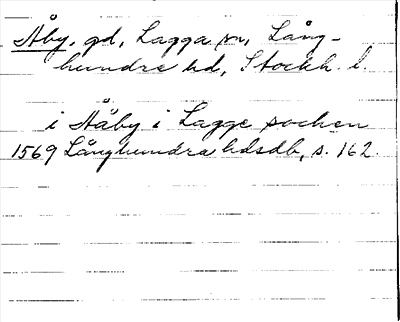 Åby, gd, Lagga sn, Lång-
hundra hd, Stockh. l.
i Aåby i Lagge sochen
1569 Långhundra hdsdb, s. 162.